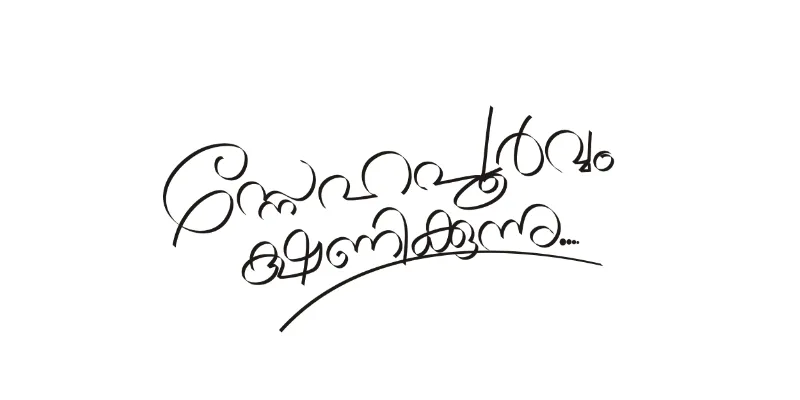 സ്നേഹപൂർവം
ക്ഷണിക്കുന്നു....